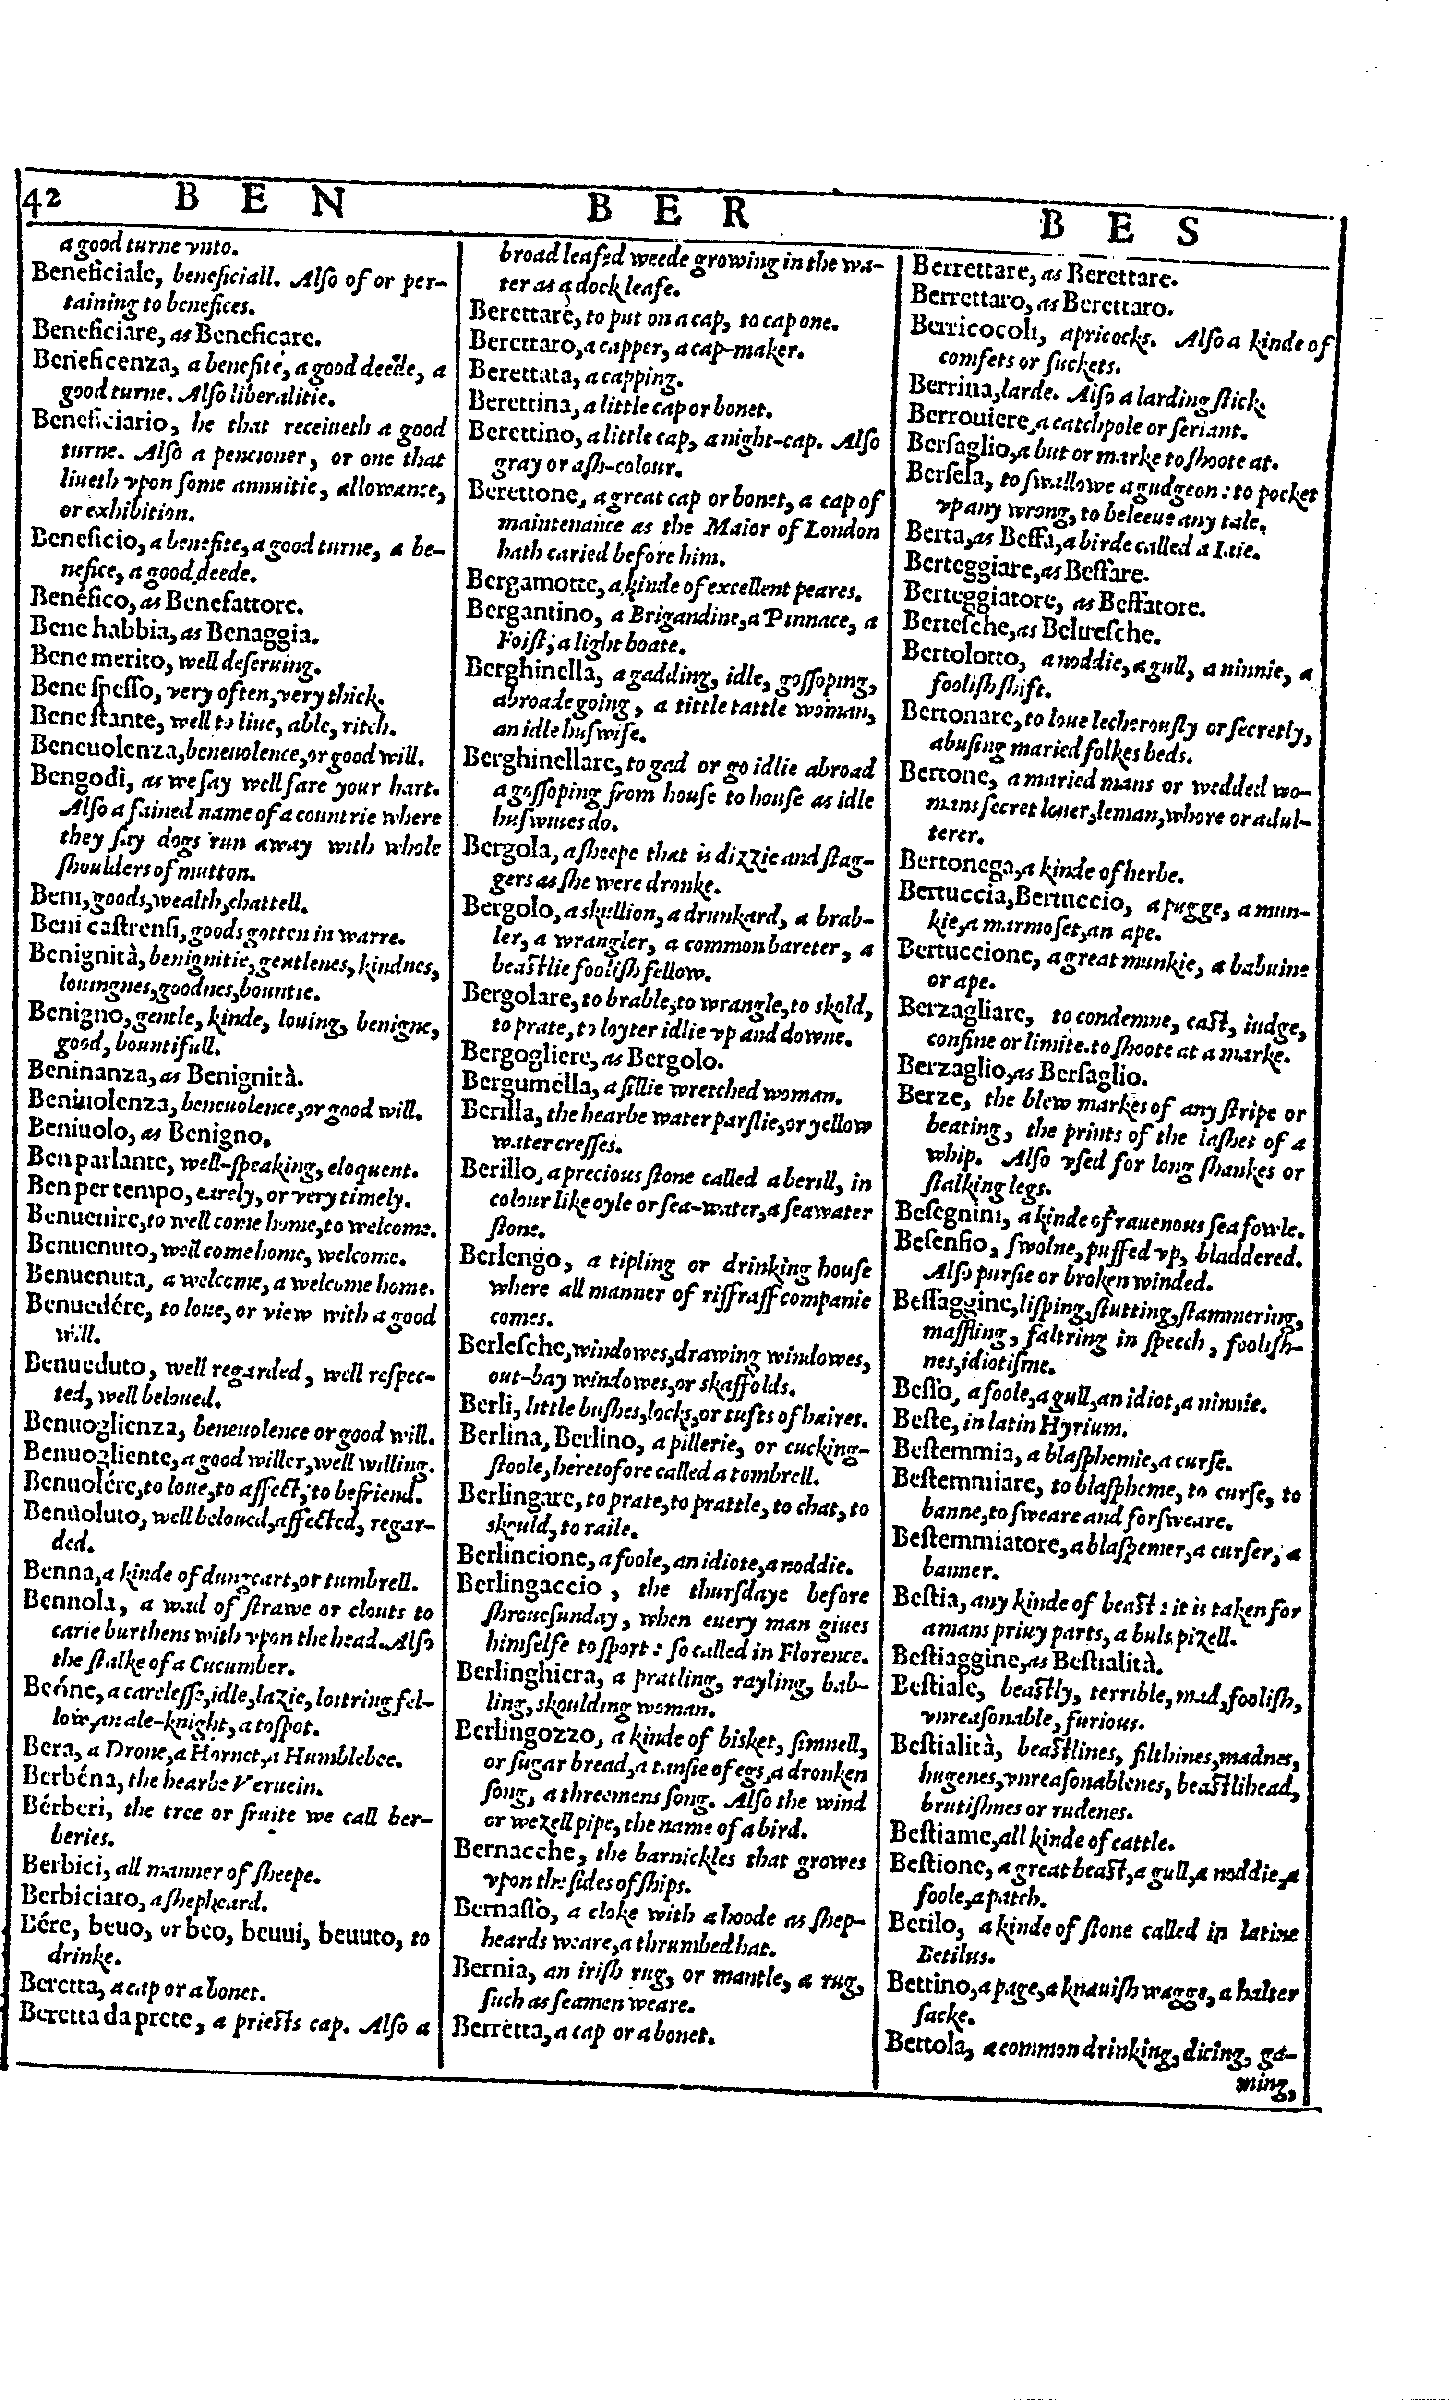 42 B E N B E R B E S
a good turne vnto.
Beneficiale, beneficiall. Alſo of or per-
taining to benefices.
Beneficiare, as Beneficare.
Beneficenza, a benefite, a good deede, a
good turne. Alſo liberalitie.
Beneficiario, he that receiueth a good
turne. Alſo a pencioner, or one that
liueth vpon ſome annuitie, allowance,
or exhibition.
Beneficio, a benefite, a good turne, a be-
nefice, a good deede.
Benéfico, as Benefattore.
Bene habbia, as Benaggia.
Bene merito, well deſeruing.
Bene ſpeſſo, very often, very thick.
Bene ſtante, well to liue, able, ritch.
Beneuolenza, beneuolence, or good will.
Bengodi, as we ſay well fare your hart.
Alſo a fained name of a countrie where
they ſay dogs run away with whole
ſhoulders of mutton.
Beni, goods, wealth, chattell.
Beni caſtrenſi, goods gotten in warre.
Benignità, benignitie, gentlenes, kindnes,
louingnes, goodnes, bountie.
Benigno, gentle, kinde, louing, benigne,
good, bountifull.
Beninanza, as Benignità.
Beniuolenza, beneuolence, or good will.
Beniuolo, as Benigno.
Ben parlante, well-ſpeaking, eloquent.
Ben per tempo, earely, or very timely.
Benuenire, to well come home, to welcome.
Benuenuto, well come home, welcome.
Benuenuta, a welcome, a welcome home.
Benuedére, to loue, or view with a good
will.
Benueduto, well regarded, well reſpec-
ted, well beloued.
Benuoglienza, beneuolence or good will.
Benuogliente, a good willer, well willing.
Benuolére, to loue, to affect, to befriend.
Benuoluto, well beloued, affected, regar-
ded.
Benna, a kinde of dungcart, or tumbrell.
Bennola, a wad of ſtrawe or clouts to
carie burthens with vpon the head. Alſo
the ſtalke of a Cucumber.
Beóne, a careleſſe, idle, lazie, loitring fel-
low, an ale-knight, a toſpot.
Bera, a Drone, a Hornet, a Humblebee.
Berbéna, the hearbe Veruein.
Bérberi, the tree or fruite we call ber-
beries.
Berbici, all manner of ſheepe.
Berbiciaro, a ſhepheard.
Bére, beuo, or beo, beuui, beuuto, to
drinke.
Beretta, a cap or a bonet.
Beretta da prete, a prieſts cap. Alſo a
broad leafed weede growing in the wa-
ter as a dock leafe.
Berettare, to put on a cap, to cap one.
Berettaro, a capper, a cap-maker.
Berettata, a capping.
Berettina, a little cap or bonet.
Berettino, a little cap, a night-cap. Alſo
gray or aſh-colour.
Berettone, a great cap or bonet, a cap of
maintenance as the Maior of London
hath caried before him.
Bergamotte, a kinde of excellent peares.
Bergantino, a Brigandine, a Pinnace, a
Foiſt, a light boate.
Berghinella, a gadding, idle, goſſoping,
abroade going, a tittle tattle woman,
an idle huſwife.
Berghinellare, to gad or go idlie abroad
a goſſoping from houſe to houſe as idle
huſwiues do.
Bergola, a ſheepe that is dizzie and ſtag-
gers as ſhe were dronke.
Bergolo, a skullion, a drunkard, a brab-
ler, a wrangler, a common bareter, a
beaſtlie fooliſh fellow.
Bergolare, to brable, to wrangle, to skold,
to prate, to loyter idlie vp and downe.
Bergogliere, as Bergolo.
Bergumella, a ſillie wretched woman.
Berilla, the hearbe water parſlie, or yellow
water creſſes.
Berillo, a precious ſtone called a berill, in
colour like oyle or ſea-water, a ſeawater
ſtone.
Berlengo, a tipling or drinking houſe
where all manner of riffraff companie
comes.
Berleſche, windowes, drawing windowes,
out-bay windowes, or skaffolds.
Berli, little buſhes, locks, or tufts of haires.
Berlina, Berlino, a pillerie, or cucking-
ſtoole, heretofore called a tombrell.
Berlingare, to prate, to prattle, to chat, to
skould, to raile.
Berlincione, a foole, an idiote, a noddie.
Berlingaccio, the thurſdaye before
ſhroueſunday, when euery man giues
himſelfe to ſport: ſo called in Florence.
Berlinghiera, a pratling, rayling, bab-
ling, skoulding woman.
Berlingozzo, a kinde of bisket, ſimnell,
or ſugar bread, a tanſie of egs, a dronken
ſong, a threemens ſong. Alſo the wind
or wezell pipe, the name of a bird.
Bernacche, the barnickles that growes
vpon the ſides of ſhips.
Bernaſſo, a cloke with a hoode as ſhep-
heards weare, a thrumbed hat.
Bernia, an iriſh rug, or mantle, a rug,
ſuch as ſeamen weare.
Berretta, a cap or a bonet.
Berrettare, as Berettare.
Berrettaro, as Berettaro.
Berricocoli, apricocks. Alſo a kinde of
comfets or ſuckets.
Berrina, larde. Alſo a larding ſtick.
Berrouiere, a catchpole or ſeriant.
Berſaglio, a but or marke to ſhoote at.
Berſela, to ſwallowe a gudgeon: to pocket
vp any wrong, to beleeue any tale.
Berta, as Beffa, a birde called a Iaie.
Berteggiare, as Beffare.
Berteggiatore, as Beffatore.
Berteſche, as Beltreſche.
Bertolotto, a noddie, a gull, a ninnie, a
fooliſh ſhift.
Bertonare, to loue lecherouſly or ſecretly,
abuſing maried folkes beds.
Bertone, a maried mans or wedded wo-
mans ſecret louer, leman, whore or adul-
terer.
Bertonega, a kinde of herbe.
Bertuccia, Bertuccio, a pugge, a mun-
kie, a marmoſet, an ape.
Bertuccione, a great munkie, a babuine
or ape.
Berzagliare, to condemne, caſt, iudge,
confine or limite. to ſhoote at a marke.
Berzaglio, as Berſaglio.
Berze, the blew markes of any ſtripe or
beating, the prints of the laſhes of a
whip. Alſo vſed for long ſhankes or
ſtalking legs.
Beſegnini, a kinde of rauenous ſea fowle.
Beſenfio, ſwolne, puffed vp, bladdered.
Alſo purſie or broken winded.
Beſſaggine, liſping, ſtutting, ſtammering,
maffling, faltring in ſpeech, fooliſh-
nes, idiotiſme.
Beſſo, a foole, a gull, an idiot, a ninnie.
Beſte, in latin Hyrium.
Beſtemmia, a blaſphemie, a curſe.
Beſtemmiare, to blaſpheme, to curſe, to
banne, to ſweare and forſweare.
Beſtemmiatore, a blaſpemer, a curſer, a
banner.
Beſtia, any kinde of beaſt: it is taken for
a mans priuy parts, a buls pizell.
Beſtiaggine, as Beſtialità.
Beſtiale, beaſtly, terrible, mad, fooliſh,
vnreaſonable, furious.
Beſtialità, beaſtlines, filthines, madnes,
hugenes, vnreaſonablenes, beaſtlihead,
brutiſhnes or rudenes.
Beſtiame, all kinde of cattle.
Beſtione, a great beaſt, a gull, a noddie, a
foole, a patch.
Betilo, a kinde of ſtone called in latine
Betilus.
Bettino, a page, a knauiſh wagge, a halter
ſacke.
Bettola, a common drinking, dicing, ga-
ming,